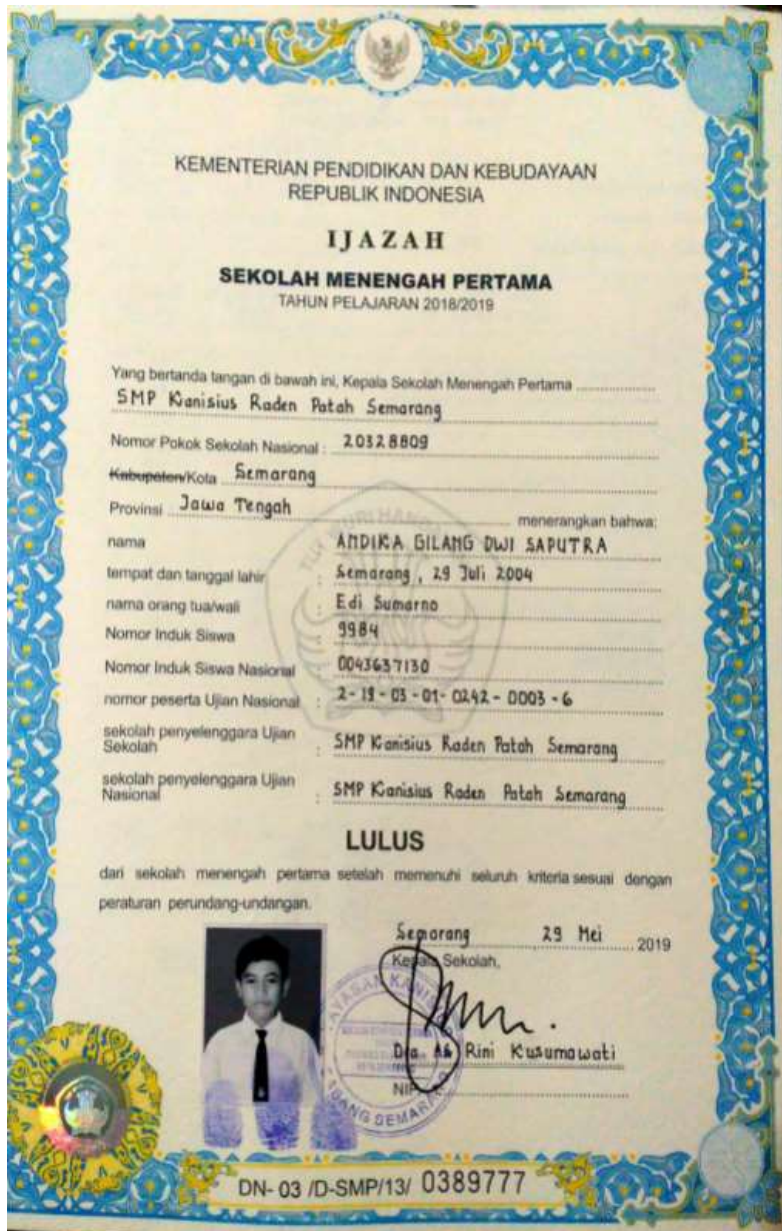 KEMENTERIAN PENDIDIKAN DAN KEBUDAYAAN
REPUBLIK INDONESIA
IJAZAH
SEKOLAH MENENGAH PERTAMA
TAHUN PELAJARAN 2018/2019
Yang bertanda tangan di bawah ini, Kepala Sekolah Menengah Pertama
SMP Kanisius Raden Patah Semarang
Nomor Pokok Sekolah Nasional : 20328809
Kabupaten/Kota Semarang
Provinsi Jawa Tengah menerangkan bahwa:
nama ANDIKA GILANG DWI SAPUTRA
tempat dan tanggal lahir : Semarang, 29 Juli 2004
nama orang tua/wali : Edi Sumarno
Nomor Induk Siswa : 9984
Nomor Induk Siswa Nasional : 0043637130
nomor peserta Ujian Nasional : 2-19-03-01-0242-0003-6
sekolah penyelenggara Ujian
Sekolah : SMP Kanisius Raden Patah Semarang
sekolah penyelenggara Ujian
Nasional : SMP Kanisius Raden Patah Semarang
LULUS
dari sekolah menengah pertama setelah memenuhi seluruh kriteria sesuai dengan
peraturan perundang-undangan.
Semarang 29 Mei 2019
Kepala Sekolah,
YAYASAN KANISIUS
CABANG SEMARANG
Dra. Rini Kusumawati
NIP
DN- 03 /D-SMP/13/ 0389777